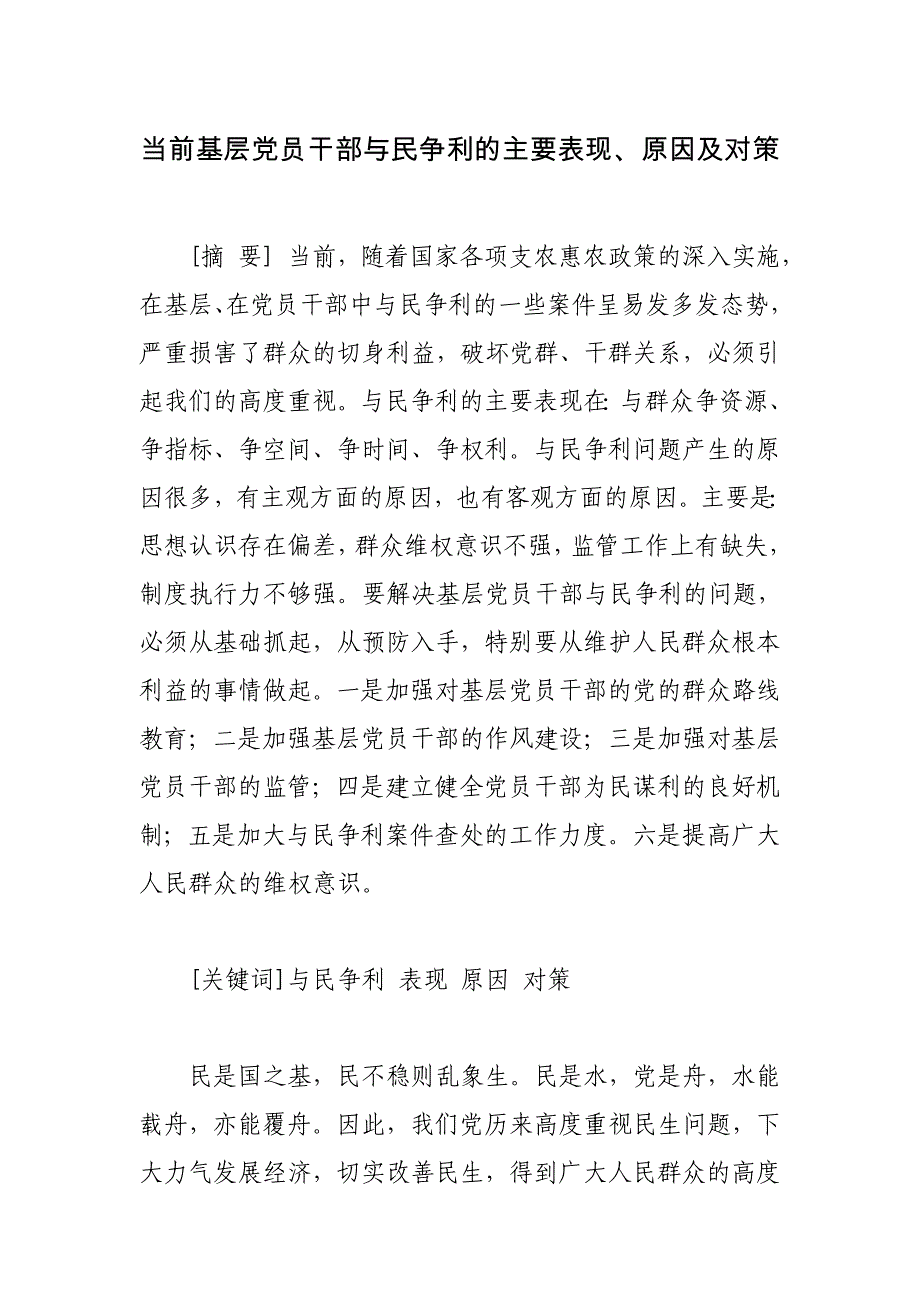 当前基层党员干部与民争利的主要表现、原因及对策
[摘 要] 当前，随着国家各项支农惠农政策的深入实施，
在基层、在党员干部中与民争利的一些案件呈易发多发态势，
严重损害了群众的切身利益，破坏党群、干群关系，必须引
起我们的高度重视。与民争利的主要表现在：与群众争资源、
争指标、争空间、争时间、争权利。与民争利问题产生的原
因很多，有主观方面的原因，也有客观方面的原因。主要是：
思想认识存在偏差，群众维权意识不强，监管工作上有缺失，
制度执行力不够强。要解决基层党员干部与民争利的问题，
必须从基础抓起，从预防入手，特别要从维护人民群众根本
利益的事情做起。一是加强对基层党员干部的党的群众路线
教育；二是加强基层党员干部的作风建设；三是加强对基层
党员干部的监管；四是建立健全党员干部为民谋利的良好机
制；五是加大与民争利案件查处的工作力度。六是提高广大
人民群众的维权意识。
[关键词]与民争利 表现 原因 对策
民是国之基，民不稳则乱象生。民是水，党是舟，水能
载舟，亦能覆舟。因此，我们党历来高度重视民生问题，下
大力气发展经济，切实改善民生，得到广大人民群众的高度